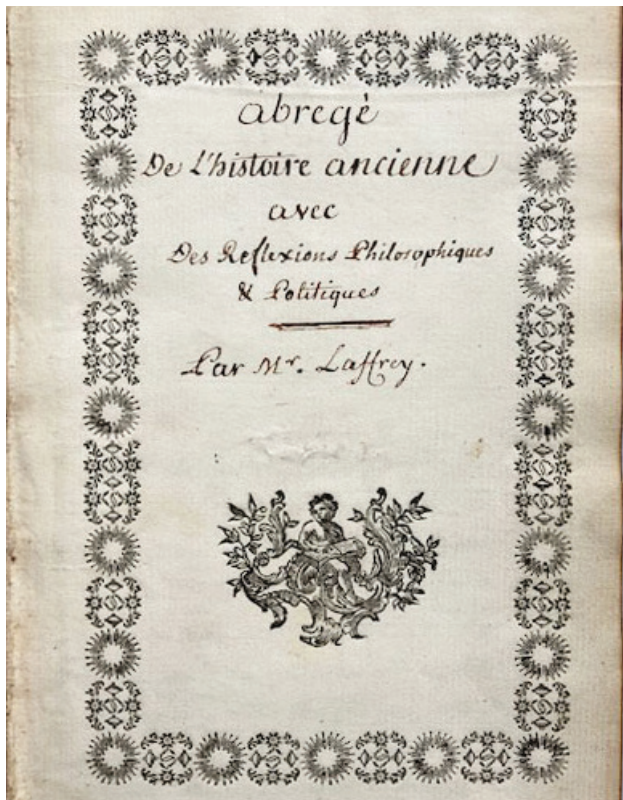 abregé
De L'histoire ancienne
avec
Des Reflexions Philosophiques
& Politiques
Par Mr. Laffrey.